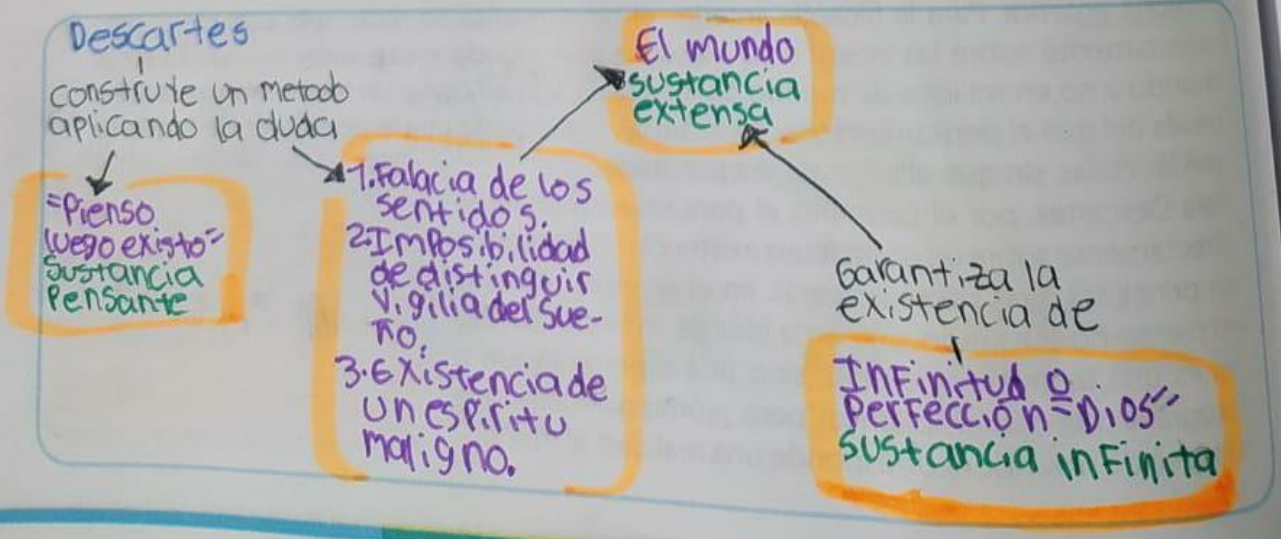 Descartes
construye un metodo
aplicando la duda
"Pienso
luego existo"
Sustancia
Pensante
1.Falacia de los
sentidos.
2.Imposibilidad
de distinguir
vigilia del sue-
ño.
3.Existencia de
un espiritu
maligno.
El mundo
sustancia
extensa
Garantiza la
existencia de
Infinitud o
Perfección "Dios"
sustancia infinita